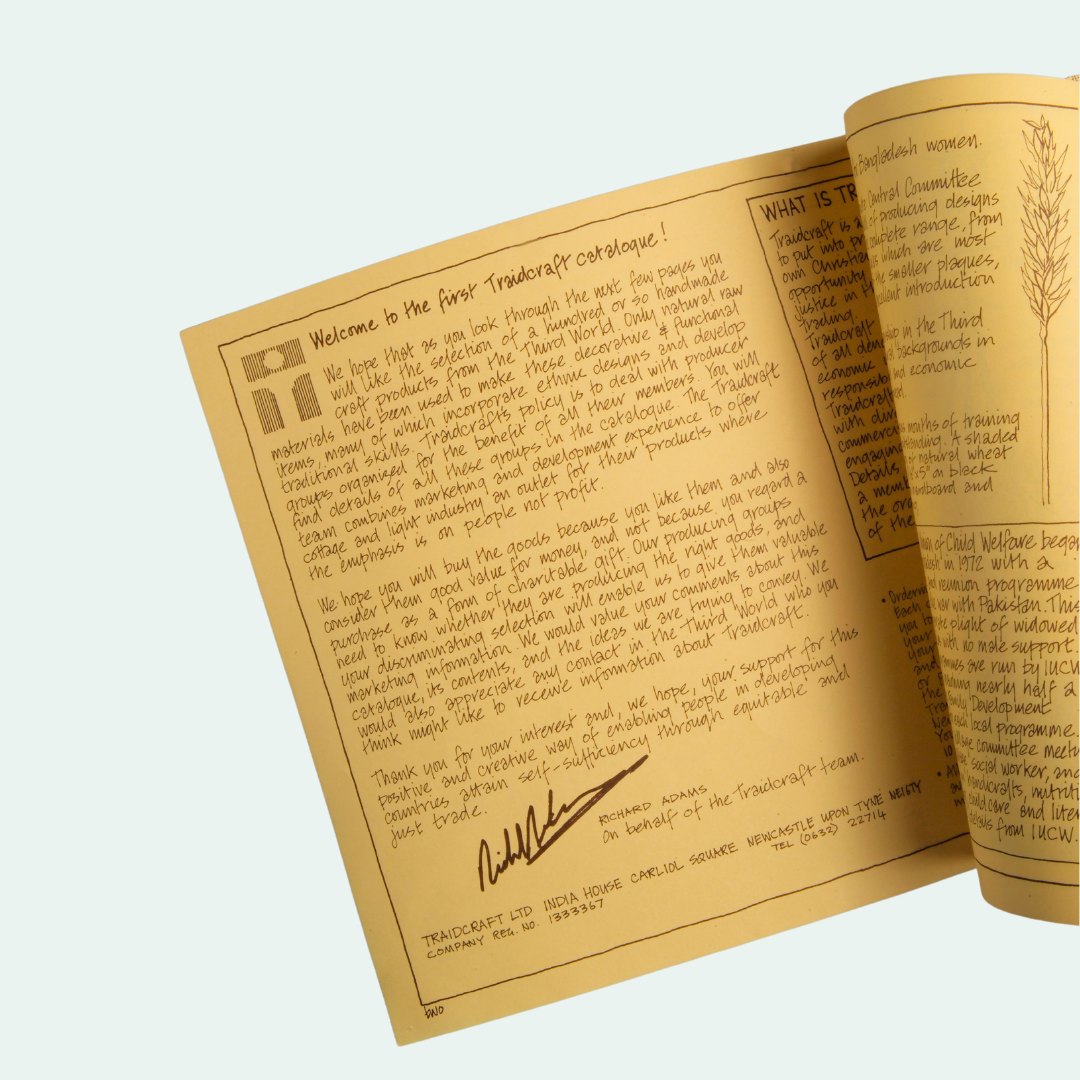 Welcome to the first Traidcraft catalogue!
We hope that as you look through the next few pages you
will like the selection of a hundred or so handmade
craft products from the Third World. Only natural raw
materials have been used to make these decorative & functional
items, many of which incorporate ethnic designs and develop
traditional skills. Traidcraft's policy is to deal with producer
groups organised for the benefit of all their members. You will
find details of all these groups in the catalogue. The Traidcraft
team combines marketing and development experience to offer
cottage and light industry an outlet for their products where
the emphasis is on people not profit.
We hope you will buy the goods because you like them and also
consider them good value for money, and not because you regard a
purchase as a form of charitable gift. Our producing groups
need to know whether they are producing the right goods, and
your discriminating selection will enable us to give them valuable
marketing information. We would value your comments about this
catalogue, its contents, and the ideas we are trying to convey. We
would also appreciate any contact in the Third World who you
think might like to receive information about Traidcraft.
Thank you for your interest and, we hope, your support for this
positive and creative way of enabling people in developing
countries attain self-sufficiency through equitable and
just trade.
RICHARD ADAMS
on behalf of the Traidcraft team.
TRAIDCRAFT LTD INDIA HOUSE CARLIOL SQUARE NEWCASTLE UPON TYNE NE16TY
TEL (0632) 22714
COMPANY REG. NO. 1333367
WHAT IS TR
Traidcraft is a
to put into pr
own Christian
opportunity
justice in th
trading.
Traidcraft
of all den
economic
responsib
Traidcraft
with dir
commerc
engaging
Details
a memb
the or
of the
• Orderin
Each
you
your
and
or
the
Bangladesh women.
Central Committee
of producing designs
complete range, from
which are most
the smaller plaques,
excellent introduction
in the Third
backgrounds in
and economic
months of training
standing. A shaded
of natural wheat
x5" on black
hardboard and
of Child Welfare began
desh in 1972 with a
and reunion programme
war with Pakistan. This
plight of widowed
with no male support.
are run by IUCW
nearly half a
Family Development
each local programme.
committee meeti
social worker, and
handicrafts, nutriti
child care and liter
details from IUCW.